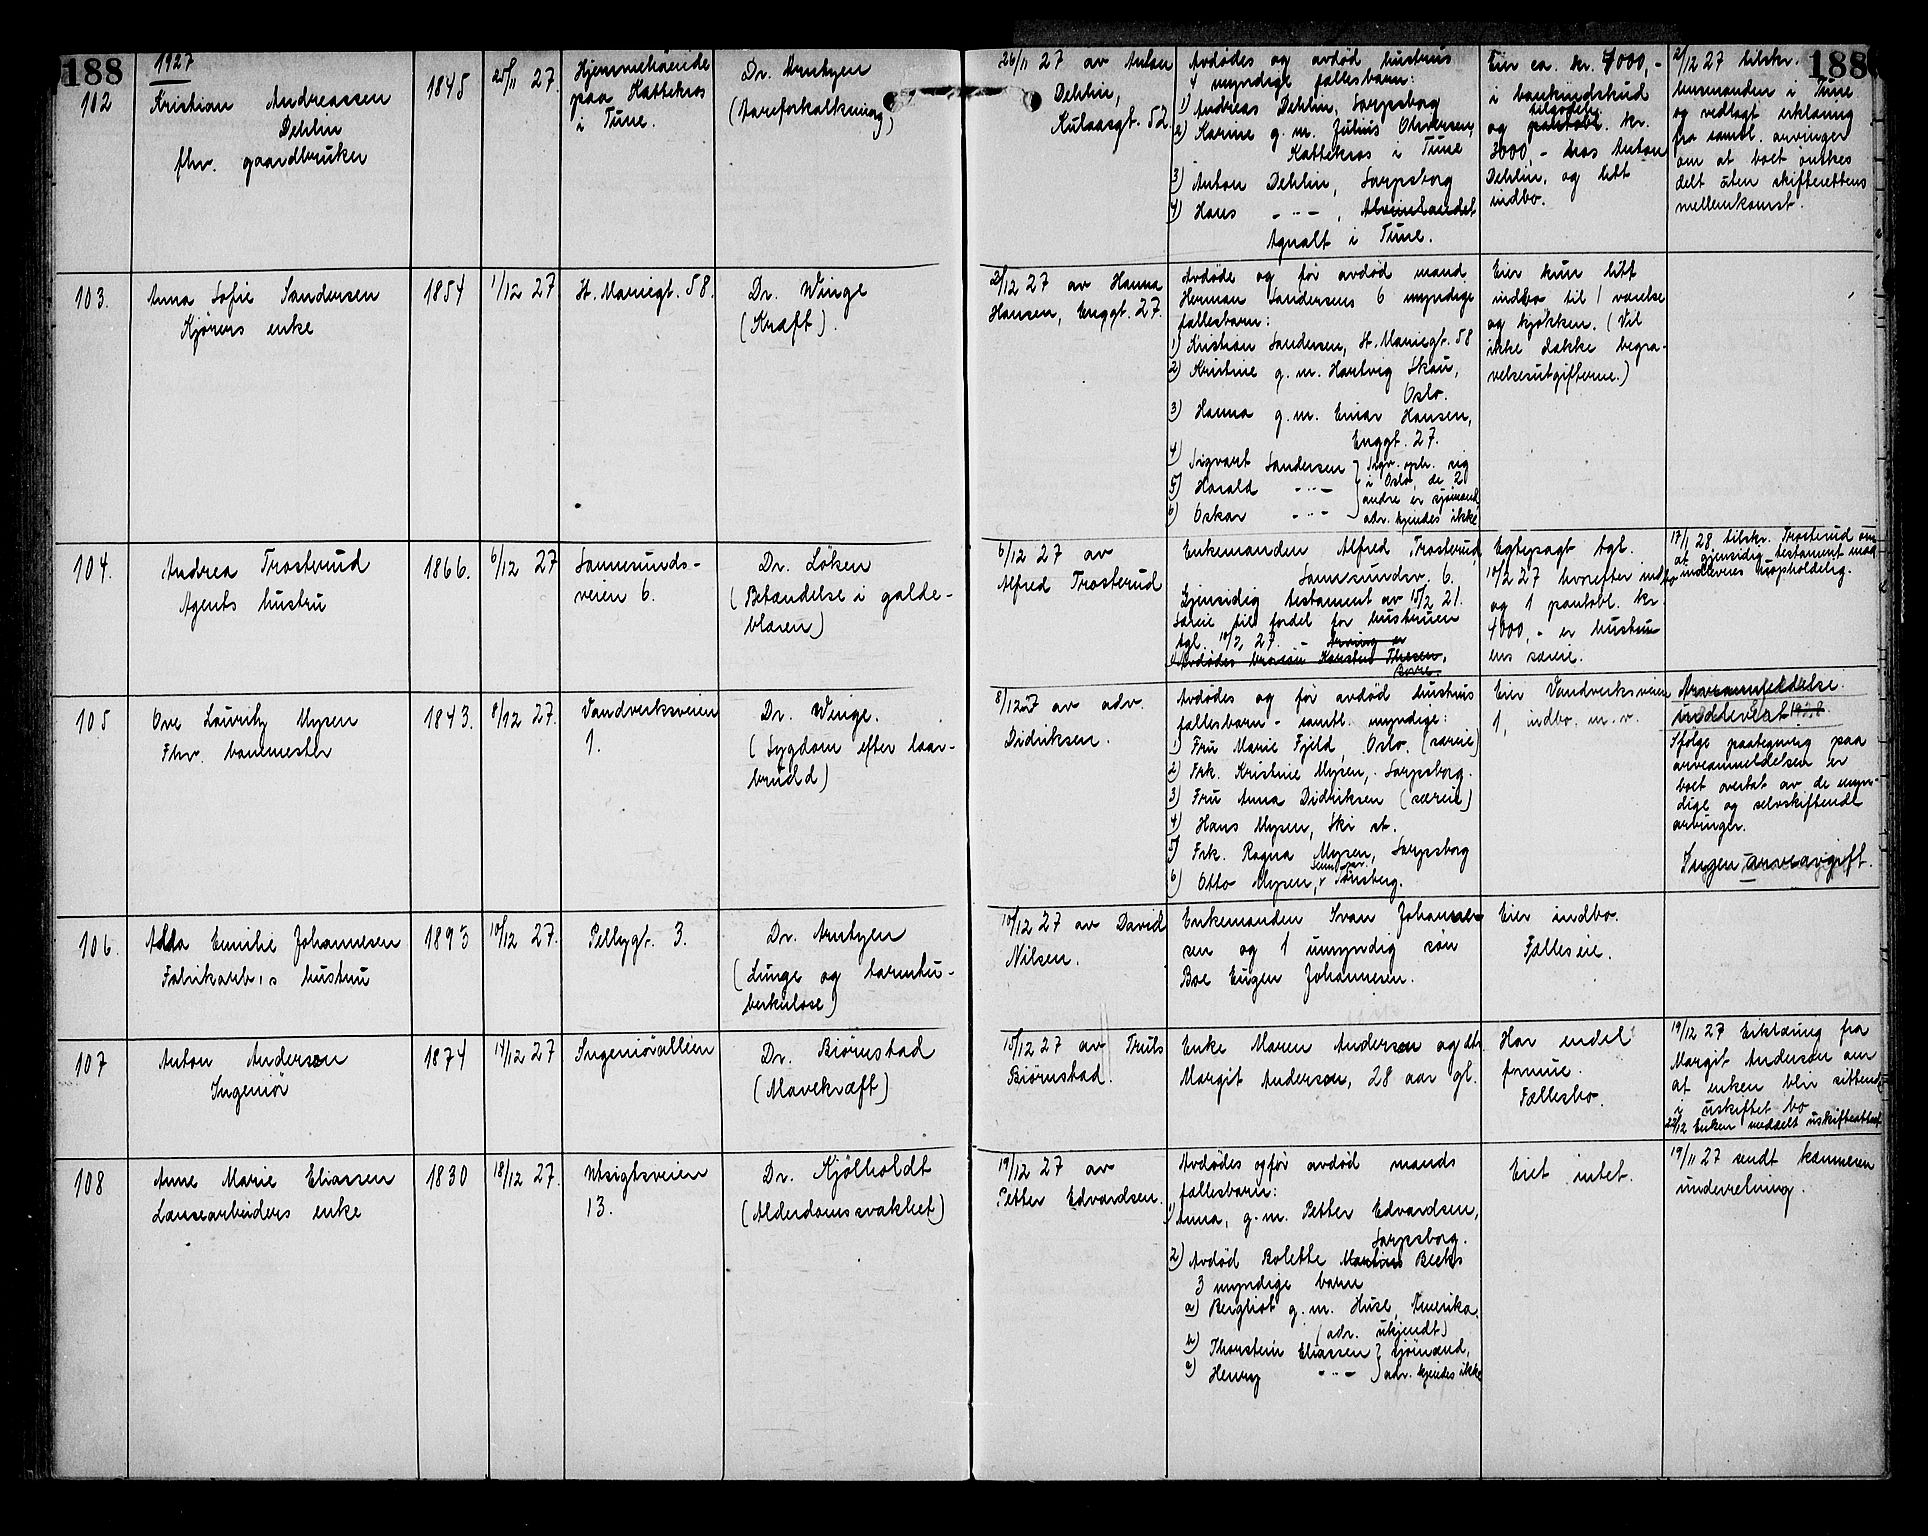 188
188
1927
102
Kristian Andreassen
Dehlin
fhv. gaardbruker
1845
25/11 27
Hjemmehörende
paa Hattekros
i Tune.
Dr. Arntzen
(Aareforkalkning)
26/11 27 av Anton
Dehlin,
Kulaasgt. 52
Avdödes og avdød hustrus
4 myndige fællesbarn:
1) Andreas Dehlin, Sarpsborg
2) Karine g.m. Julius
Kattekros i Tune
3) Anton Dehlin, Sarpsborg
4) Hans - " - ,
Agnalt i Tune.
Eier ca. kr. 4000,-
i bankindskud
tilgodeh.
og pantobl. kr.
3000,- hos Anton
Dehlin, og litt
indbo.
2/12 27 tilskr.
lensmanden i Tune
og vedlagt erklæring
fra samtl. arvinger
om at boet önskes
delt uten skifterettens
mellemkomst.
103.
Anna Sofie Sandersen
Kjörers enke
1854
1/12 27
St. Mariegt. 58.
Dr. Winge
(Kræft).
2/12 27 av Hanna
Hansen, Enggt. 27.
Avdöde og för avdöd mand
Herman Sandersens 6 myndige
fællesbarn:
1) Kristian Sandersen, St. Mariegt. 58
2) Kristine g.m. Hartvig Skau,
Oslo.
3) Hanna g.m. Einar Hansen,
Enggt. 27.
4) Sigvart Sandersen } Sigv. oph. sig
5) Harald - " - } i Oslo, de 2
andre er sjömænd,
6) Oskar - " - } adr. kjendes ikke
Eier kun litt
indbo til 1 værelse
og kjökken. (Vil
ikke dække begra-
velsesutgifterne.)
104.
Andrea Trosterud
Agents hustru
1866.
6/12 27
Sannesunds-
veien 6.
Dr. Löken
(Betændelse i galde-
blæren)
6/12 27 av
Alfred Trosterud
Enkemanden Alfred Trosterud,
Sannesundsv. 6.
Gjensidig testament av 15/2 21.
Særeie til fordel for hustruen
tgl. 10/2 27. - Arving er
Avdödes brorsön Karsten Thesen,
Borre.
Egtepagt tgl.
10/2 27 hvorefter indbo
og 1 pantobl. kr.
4000,- er hustru-
ens særeie.
17/1 28 tilskr. Trosterud om
at gjensidig testament maa
indleveres uopholdelig.
105
Ove Lauritz Mysen
Fhv. banemester
1843.
8/12 27.
Vandverksveien
1.
Dr. Winge.
(Sygdom efter laar-
brudd)
8/12 27 av adv.
Didriksen.
Avdödes og för avdöd hustrus
fællesbarn - samtl. myndige:
1) Fru Marie Fjeld, Oslo. (særeie)
2) Frk. Kristine Mysen, Sarpsborg.
3) Fru Anna Didriksen (særeie)
4) Hans Mysen, Ski st.
5) Frk. Ragna Mysen, Sarpsborg
6) Otto Mysen, Tönsberg.
Eier Vandverksveien
1, indbo m.v.
Arveanmeldelse
indlevert 1928
Ifölge paategning paa
arveanmeldelsen er
boet overtat av de myn-
dige og selvskiftende
arvinger.
Ingen arveavgift.
106.
Alda Emilie Johannesen
Fabrikarb.s hustru
1893
10/12 27.
Pellygt. 3.
Dr. Arntzen
(Lunge og tarmtu-
berkulose)
10/12 27 av David
Nilsen.
Enkemanden Ivan Johanne-
sen og 1 umyndig sön
Boe Eugen Johannesen.
Eier indbo.
Fælleseie.
107
Anton Anderson
Ingeniör
1874
14/12 27
Ingeniöralleen
Dr. Biörnstad
(Mavekræft)
15/12 27 av Truls
Biörnstad.
Enke Maren Anderson og dtr.
Margit Anderson, 28 aar gl.
Har endel
formue.
Fællesbo.
19/12 27 Erklæring fra
Margit Anderson om
at enken blir sittende
i uskiftet bo
22/12 Enken meddelt uskifteattest
108
Anne Marie Eliassen
Lausearbeiders enke
1830
18/12 27.
Utsigtsveien
13.
Dr. Kjölholdt
(Alderdomssvakhet)
19/12 27 av
Petter Edvardsen.
Avdödes og för avdöd mands
fællesbarn:
1) Anna, g.m. Petter Edvardsen,
Sarpsborg.
2) Avdöd Bolette Becks
3 myndige barn
a) Bergliot g.m. Huse, Amerika
(adr. ukjendt)
b) Thorstein Eliassen } sjömænd,
c) Henry - " - } adr. kjendes ikke
Eiet intet.
19/11 27 sendt kæmneren
underretning.